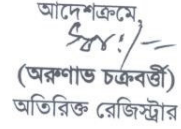 আদেশক্রমে,
স্বাঃ/-
(অরুণাভ চক্রবর্ত্তী)
অতিরিক্ত রেজিস্ট্রার